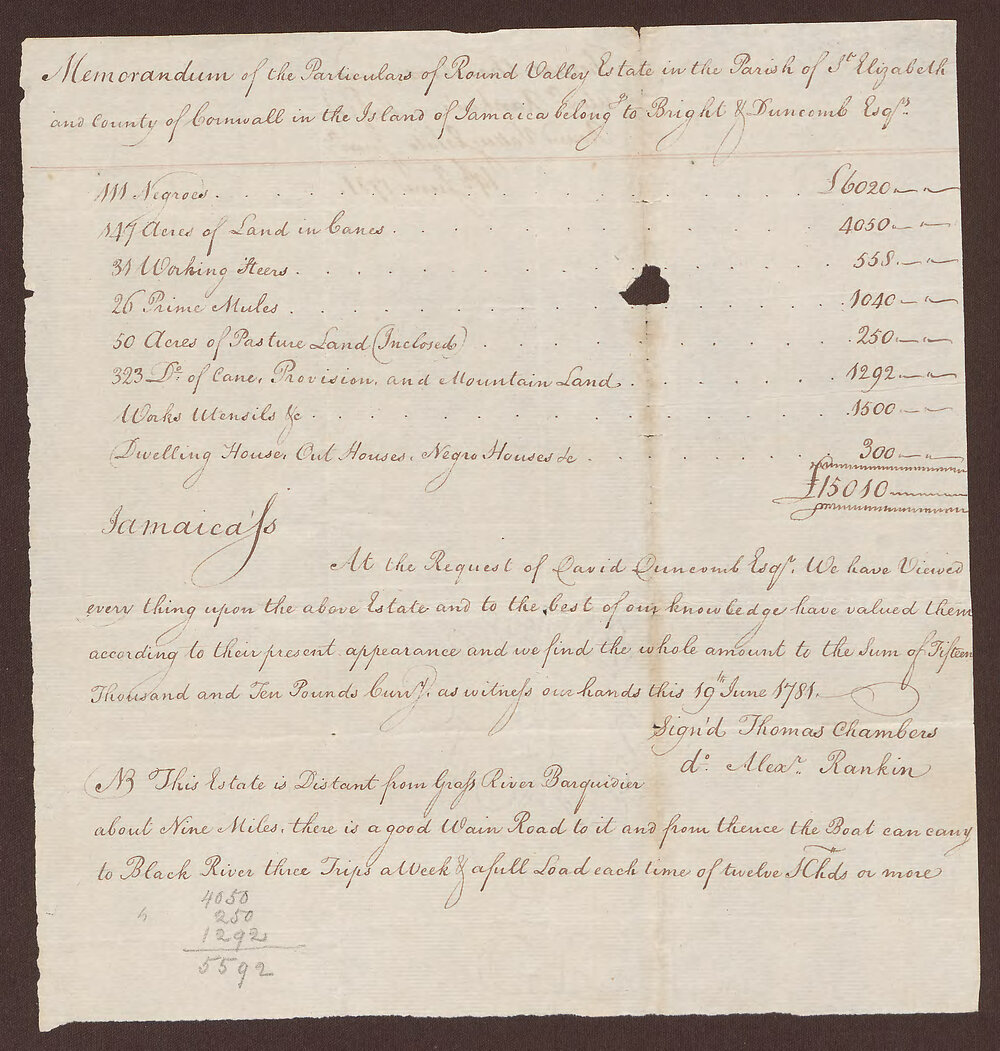 Memorandum of the Particulars of Round Valley Estate in the Parish of St. Elizabeth
and County of Cornwall in the Island of Jamaica belong.g to Bright & Duncomb Esqrs.
111 Negroes . . . . . . . . . £6020 " "
147 Acres of Land in Canes . . . . . . . . . 4050 " "
31 Working Steers . . . . . . . . . 558 " "
26 Prime Mules . . . . . . . . . 1040 " "
50 Acres of Pasture Land (Inclosed) . . . . . . . . . 250 " "
323 Do. of Cane, Provision, and Mountain Land . . . . . . 1292 " "
Works Utensils &c . . . . . . . . . 1500 " "
Dwelling House, Out Houses, Negro Houses &c . . . . . . 300 " "
£15010
Jamaica Ss
At the Request of David Duncomb Esqr. We have Viewed
every thing upon the above Estate and to the best of our knowledge have valued them
according to their present appearance and we find the whole amount to the Sum of Fifteen
Thousand and Ten Pounds Curry. as witness our hands this 19th June 1781.
Sign'd Thomas Chambers
do. Alexr. Rankin
NB This Estate is Distant from Grass River Barquidier
about Nine Miles, there is a good Wain Road to it and from thence the Boat can carry
to Black River three Trips a Week & a full Load each time of twelve Hhds or more
4050
250
1292
5592